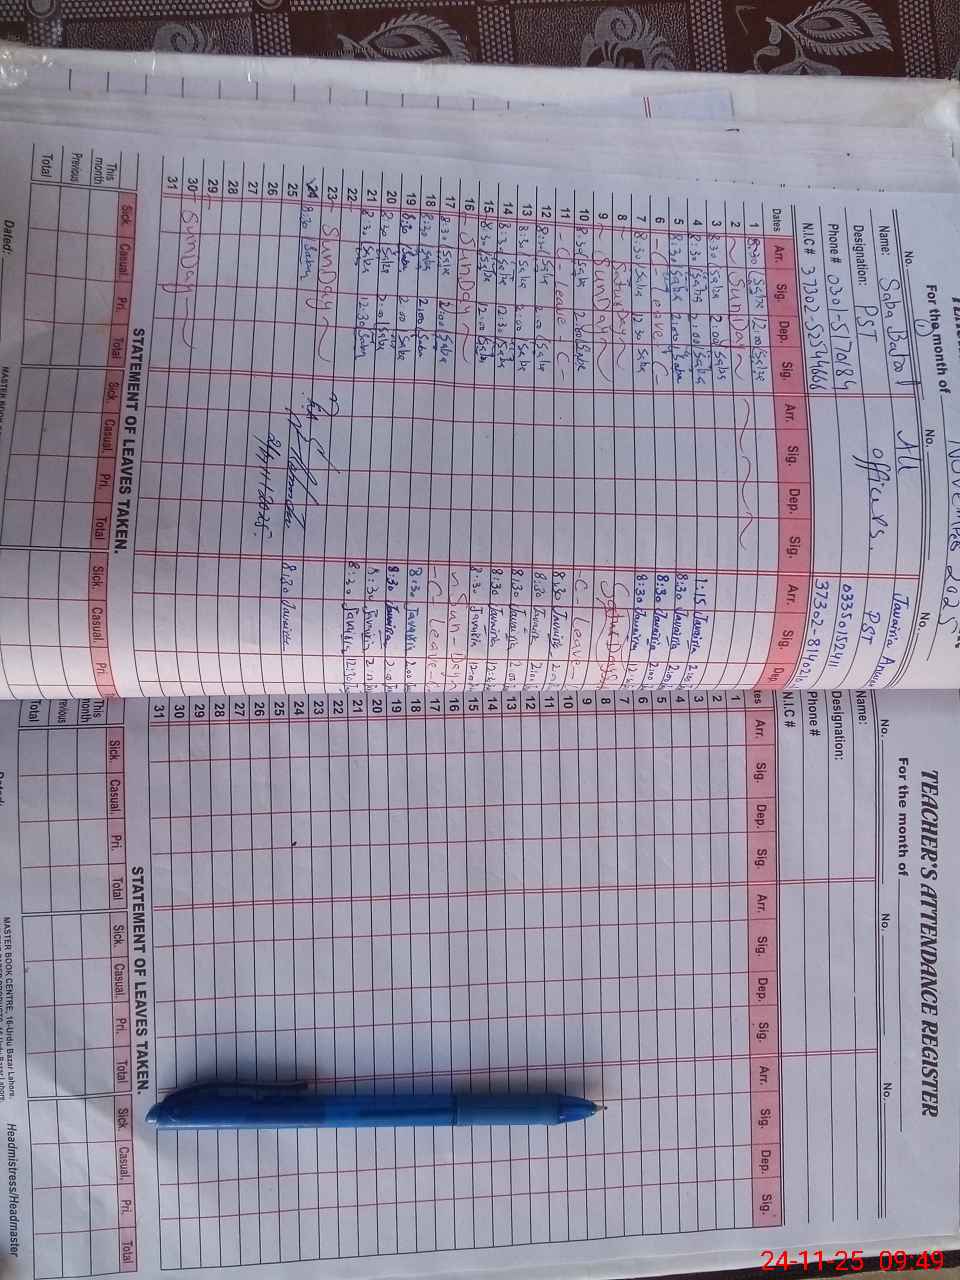 For the month of November 2025
No. No. No.
Name: Saba Batool All Javairia
Designation: PST officers. PST
Phone # 0301-5170184 03350152411
N.I.C # 37302-8140216
Dates Arr. Sig. Dep. Sig. Arr. Sig. Dep. Sig. Arr. Sig. Dep.
1 8:30 Saba 12:00 Saba
2 Sunday
3 8:30 Saba 2:00 Saba
4 8:30 Saba 2:00 Saba 1:15 Javairia
5 8:30 Saba 2:00 Saba 8:30 Javairia 2:00
6 -C- Leave -C- 8:30 Javairia 2:00
7 8:30 Saba 12:30 Saba 8:30 Javairia
8 Saturday
9 Sunday Saturday
10 8:30 Saba 2:00 Saba
11 -C- Leave -C- -C- Leave -
12 8:30 Saba 2:00 Saba 8:30 Javairia
13 8:30 Saba 2:00 Saba 8:30 Javairia 2:00
14 8:30 Saba 12:30 Saba 8:30 Javairia 2:00
15 8:30 Saba 12:00 Saba 8:30 Javairia
16 Sunday 8:30 Javairia
17 8:30 Saba 2:00 Saba Sunday
18 8:30 Saba 2:00 Saba -C- Leave -
19 8:30 Saba 2:00 Saba 8:30 Javairia 2:00
20 8:30 Saba 2:00 Saba 8:30 Javairia 2:00
21 8:30 Saba 12:30 Saba 8:30 Javairia
22 8:30 Javairia
23 Sunday
24 8:30 Saba
25 8:30 Javairia
26 24/11/2025.
27
28
29
30 Sunday
31
STATEMENT OF LEAVES TAKEN.
Sick. Casual. Pri. Total Sick. Casual. Pri. Total Sick. Casual. Pri.
This month
Previous
Total
Dated:
TEACHER'S ATTENDANCE REGISTER
For the month of
No. No. No.
Name:
Designation:
Phone #
N.I.C #
Arr. Sig. Dep. Sig. Arr. Sig. Dep. Sig. Arr. Sig. Dep. Sig.
1
2
3
4
5
6
7
8
9
10
11
12
13
14
15
16
17
18
19
20
21
22
23
24
25
26
27
28
29
30
31
STATEMENT OF LEAVES TAKEN.
Sick. Casual. Pri. Total Sick. Casual. Pri. Total Sick. Casual. Pri. Total
This month
Previous
Total
Headmistress/Headmaster
MASTER BOOK CENTRE, 16-Urdu Bazar Lahore.
24-11-25 09:49